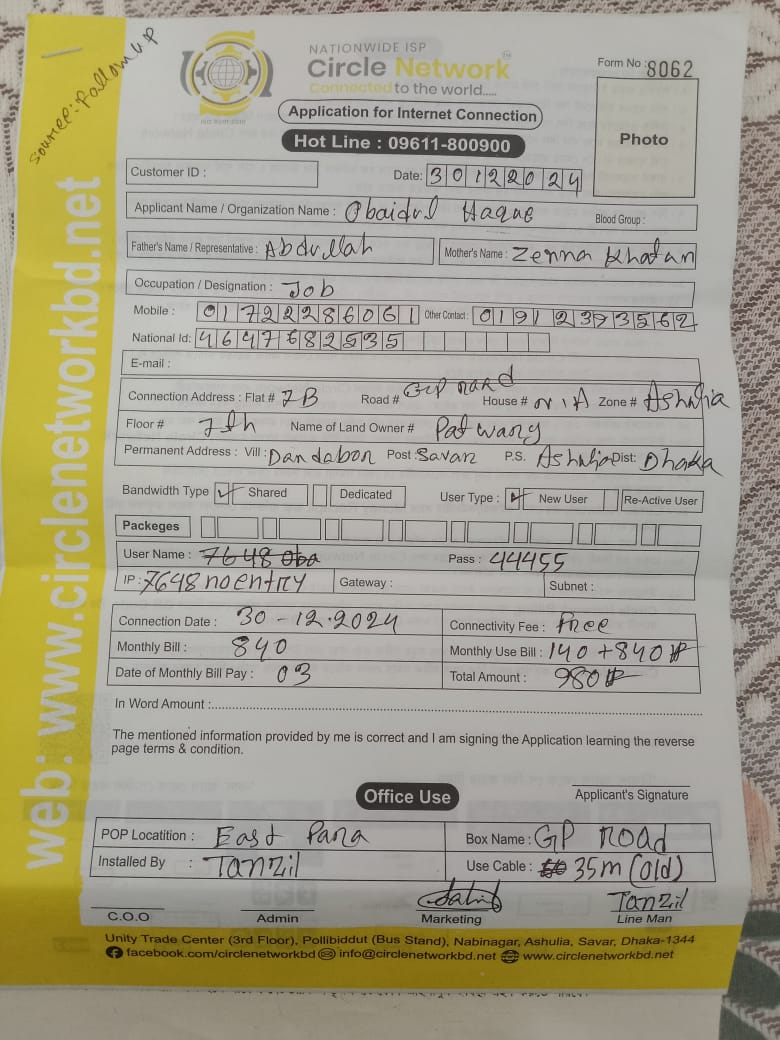 Source: Follow UP
NATIONWIDE ISP
Circle Network
Connected to the world.....
Application for Internet Connection
Hot Line : 09611-800900
Form No : 8062
Photo
Customer ID :
Date: 30122024
Applicant Name / Organization Name : Obaidul Haque Blood Group :
Father's Name / Representative : Abdullah Mother's Name : Zenna Khatan
Occupation / Designation : Job
Mobile : 01722286061 Other Contact : 01912393562
National Id: 4647682535
E-mail :
Connection Address : Flat # 7B Road # GP road House # N/A Zone # Ashulia
Floor # 7th Name of Land Owner # Patwary
Permanent Address : Vill : Dandabon Post : Savar P.S. Ashulia Dist: Dhaka
Bandwidth Type Shared Dedicated User Type : New User Re-Active User
Packeges
User Name : 7648 Oba Pass : 44455
IP : 7648 noentry Gateway : Subnet :
Connection Date : 30-12.2024 Connectivity Fee : Free
Monthly Bill : 840 Monthly Use Bill : 140 + 840
Date of Monthly Bill Pay : 03 Total Amount : 980
In Word Amount :
The mentioned information provided by me is correct and I am signing the Application learning the reverse
page terms & condition.
Applicant's Signature
Office Use
POP Locatition : East Para Box Name : GP road
Installed By : Tanzil Use Cable : 35m (old)
Tanzil
C.O.O Admin Marketing Line Man
Unity Trade Center (3rd Floor), Pollibiddut (Bus Stand), Nabinagar, Ashulia, Savar, Dhaka-1344
facebook.com/circlenetworkbd info@circlenetworkbd.net www.circlenetworkbd.net
web: www.circlenetworkbd.net